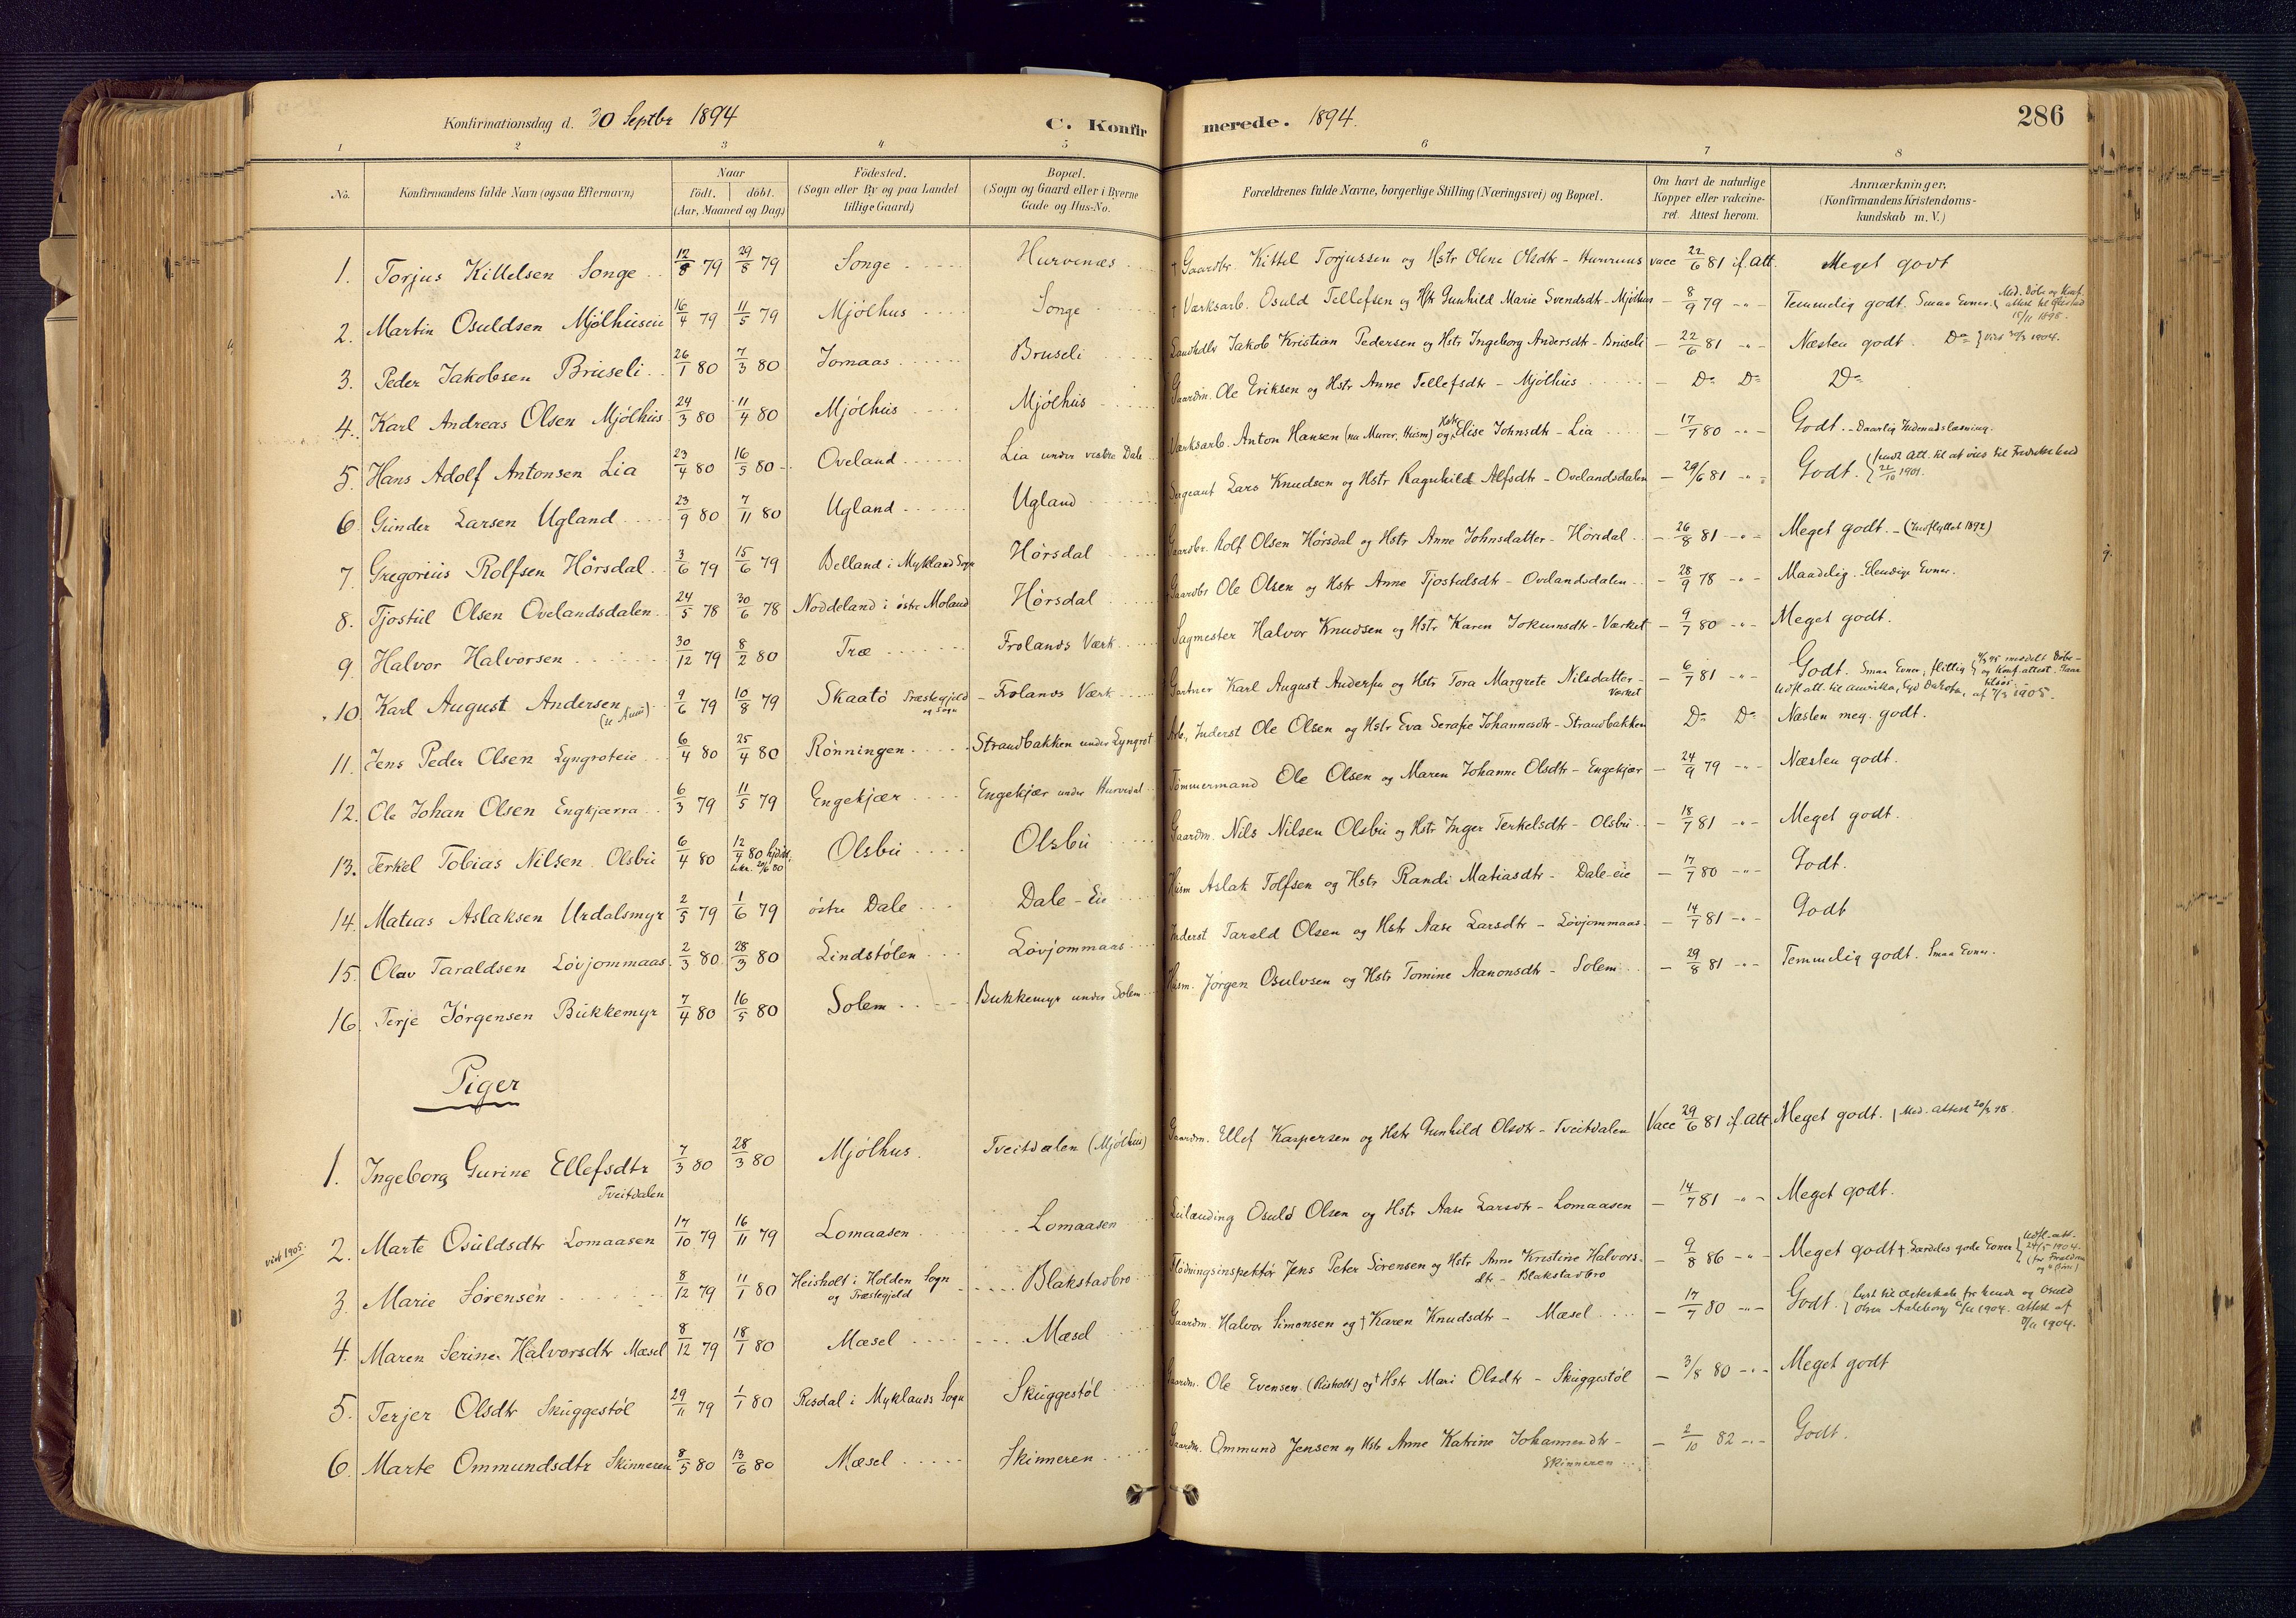 Konfirmationsdag d. 30 Septbr 1894 C. Konfirmerede. 1894. 286
1 2 3 4 5 6 7 8
No. Konfirmandens fulde Navn (ogsaa Efternavn) Naar födt. döbt. (Aar, Maaned og Dag) Födested. (Sogn eller By og paa Landet tillige Gaard) Bopæl. (Sogn og Gaard eller i Byerne Gade og Hus-No. Forældrenes fulde Navne, borgerlige Stilling (Næringsvei) og Bopæl. Om havt de naturlige Kopper eller vakcineret. Attest herom. Anmærkninger. (Konfirmandens Kristendomskundskab m. V.)
1. Torjus Kittelsen Songe 12/8 79 29/8 79 Songe Hurvenæs + Gaardbr. Kittel Torjussen og Hstr Olene Olsdtr - Hurvenæs vacc 22/6 81 if. Att. Meget godt
2. Martin Osuldsen Mjølhuseie 16/4 79 11/5 79 Mjølhus Songe + Værksarb. Osuld Tellefsen og Hstr Gunhild Marie Svendsdtr - Mjølhus - 8/9 79 -"- Temmelig godt. Smaa Evner. { Med. Døbe og Konf. attest til 15/11 1898.
3. Peder Jakobsen Bruseli 26/1 80 7/3 80 Jomaas Bruseli Landhdlr Jakob Kristian Pedersen og Hstr Ingeborg Andersdtr - Bruseli - 22/6 81 -"- Næsten godt. Do } Vist 30/3 1904.
4. Karl Andreas Olsen Mjølhus 24/3 80 11/4 80 Mjølhus Mjølhus Gaardm. Ole Eriksen og Hstr Anne Tellefsdtr - Mjølhus - Do Do Do
5. Hans Adolf Antonsen Lia 23/4 80 16/5 80 Oveland Lia under vestre Dale Værksarb. Anton Hansen (nu Murer, Husm) og Hstr Elise Johnsdtr - Lia - 17/7 80 -"- Godt. - Daarlig Indenadslæsning.
6. Gunder Larsen Ugland 23/9 80 7/11 80 Ugland Ugland Sergeant Lars Knudsen og Hstr Ragnhild Alfsdtr - Ovelandsdalen - 29/6 81 -"- Godt. { Att. til at vies til 22/10 1901.
7. Gregorius Rolfsen Hørsdal 3/6 79 15/6 79 Belland i Mykland Sogn Hørsdal Gaardbr. Rolf Olsen Hørsdal og Hstr Anne Johnsdatter - Hørsdal - 26/8 81 -"- Meget godt. - (Indflyttet 1892)
8. Tjostul Olsen Ovelandsdalen 24/5 78 30/6 78 Noddeland i østre Moland Hørsdal Gaardbr Ole Olsen og Hstr Anne Tjostulsdtr - Ovelandsdalen - 28/9 78 -"- Maadelig. Elendige Evner.
9. Halvor Halvorsen 30/12 79 8/2 80 Træ Frolands Værk Sagmester Halvor Knudsen og Hstr Karen Jokumsdtr - Værket - 9/7 80 -"- Meget godt.
10. Karl August Andersen 9/6 79 10/8 79 Skaatø Præstegjeld og Sogn - Frolands Værk Gartner Karl August Andersen og Hstr Tora Margrete Nilsdatter - Værket - 6/7 81 -"- Godt. Smaa Evner, flittig { meddelt Døbe- og Konf.attest.
Udfl att. til Amerika, Syd Dakota, af 7/3 1905.
11. Jens Peder Olsen Lyngroteie 6/4 80 25/4 80 Rønningen Strandbakken under Lyngrot Arb., Inderst Ole Olsen og Hstr Eva Serafie Johannesdtr - Strandbakken Do Do Næsten meg. godt.
12. Ole Johan Olsen Engkjærra 6/3 79 11/5 79 Engekjær Engekjær under Hurvedal Tømmermand Ole Olsen og Maren Johanne Olsdtr - Engekjær - 24/9 79 -"- Næsten godt.
13. Terkel Tobias Nilsen Olsbu 6/4 80 12/4 80 hjdøbt, bekr. 20/6 80 Olsbu Olsbu Gaardm. Nils Nilsen Olsbu og Hstr Inger Terkelsdtr - Olsbu - 18/7 81 -"- Meget godt.
14. Matias Aslaksen Urdalsmyr 2/5 79 1/6 79 østre Dale Dale-Eie Husm Aslak Tolfsen og Hstr Randi Matiasdtr - Dale-eie - 17/7 80 -"- Godt.
15. Olav Taraldsen Løvjommaas 2/3 80 28/3 80 Lindstølen Løvjommaas Inderst Tarald Olsen og Hstr Aase Larsdtr - Løvjommaas - 14/7 81 -"- Godt
16. Terje Jørgensen Bukkemyr 7/4 80 16/5 80 Solem Bukkemyr under Solem Husm. Jørgen Osulvsen og Hstr Tomine Aanonsdtr - Solem - 29/8 81 -"- Temmelig godt. Smaa Evner.
Piger
1. Ingeborg Gurine Ellefsdtr Tveitdalen 7/3 80 28/3 80 Mjølhus. Tveitdalen (Mjølhus) Gaardm. Ellef Kaspersen og Hstr Gunhild Olsdtr - Tveitdalen Vacc 29/6 81 if. Att. Meget godt. { Med. attest
vist 1905. 2. Marte Osuldsdtr Lomaasen 17/10 79 16/11 79 Lomaasen Lomaasen Leilænding Osuld Olsen og Hstr Aase Larsdtr - Lomaasen - 14/7 81 -"- Meget godt.
3. Marie Sørensen 8/12 79 11/1 80 Heisholt i Holden Sogn og Præstegjeld Blakstadbro Flødningsinspektør Jens Peter Sørensen og Hstr Anne Kristine Halvorsdtr - Blakstadbro - 9/8 86 -"- Meget godt +. Særdeles gode Evner { Udfl.-att. 24/5 1904.
4. Maren Serine Halvorsdtr Mæsel 8/12 79 18/1 80 Mæsel Mæsel Gaardm. Halvor Simonsen og + Karen Knudsdtr - Mæsel - 17/7 80 -"- Godt. { Lyst til ægteskab for hende og Osuld Olsen 1904. attest af 1904.
5. Terjer Olsdtr Skuggestøl 29/11 79 1/1 80 Risdal i Myklands Sogn Skuggestøl Gaardm. Ole Evensen (Risholt) og + Hstr Mari Olsdtr - Skuggestøl - 3/8 80 -"- Meget godt
6. Marte Ommundsdtr Skinneren 8/5 80 13/6 80 Mæsel Skinneren Gaardm. Ommund Jensen og Hstr Anne Katrine Johannesdtr - Skinneren - 2/10 82 -"- Godt.